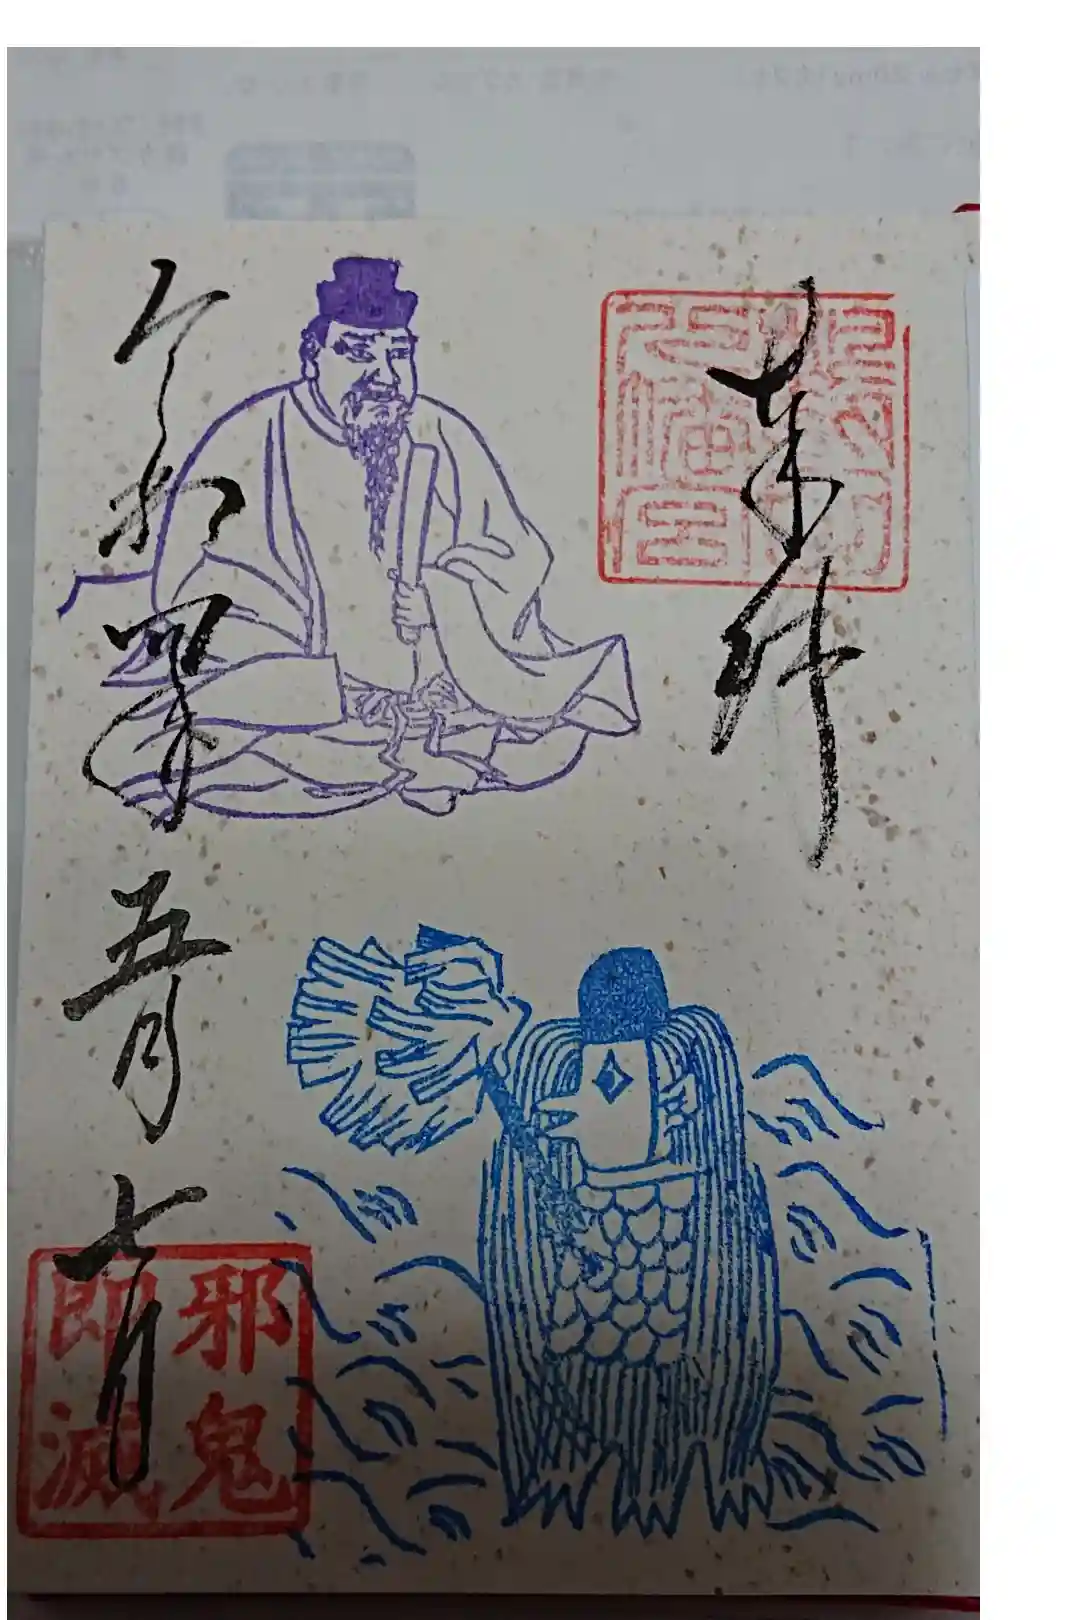 奉拝
令和四年五月七日
邪鬼
即滅